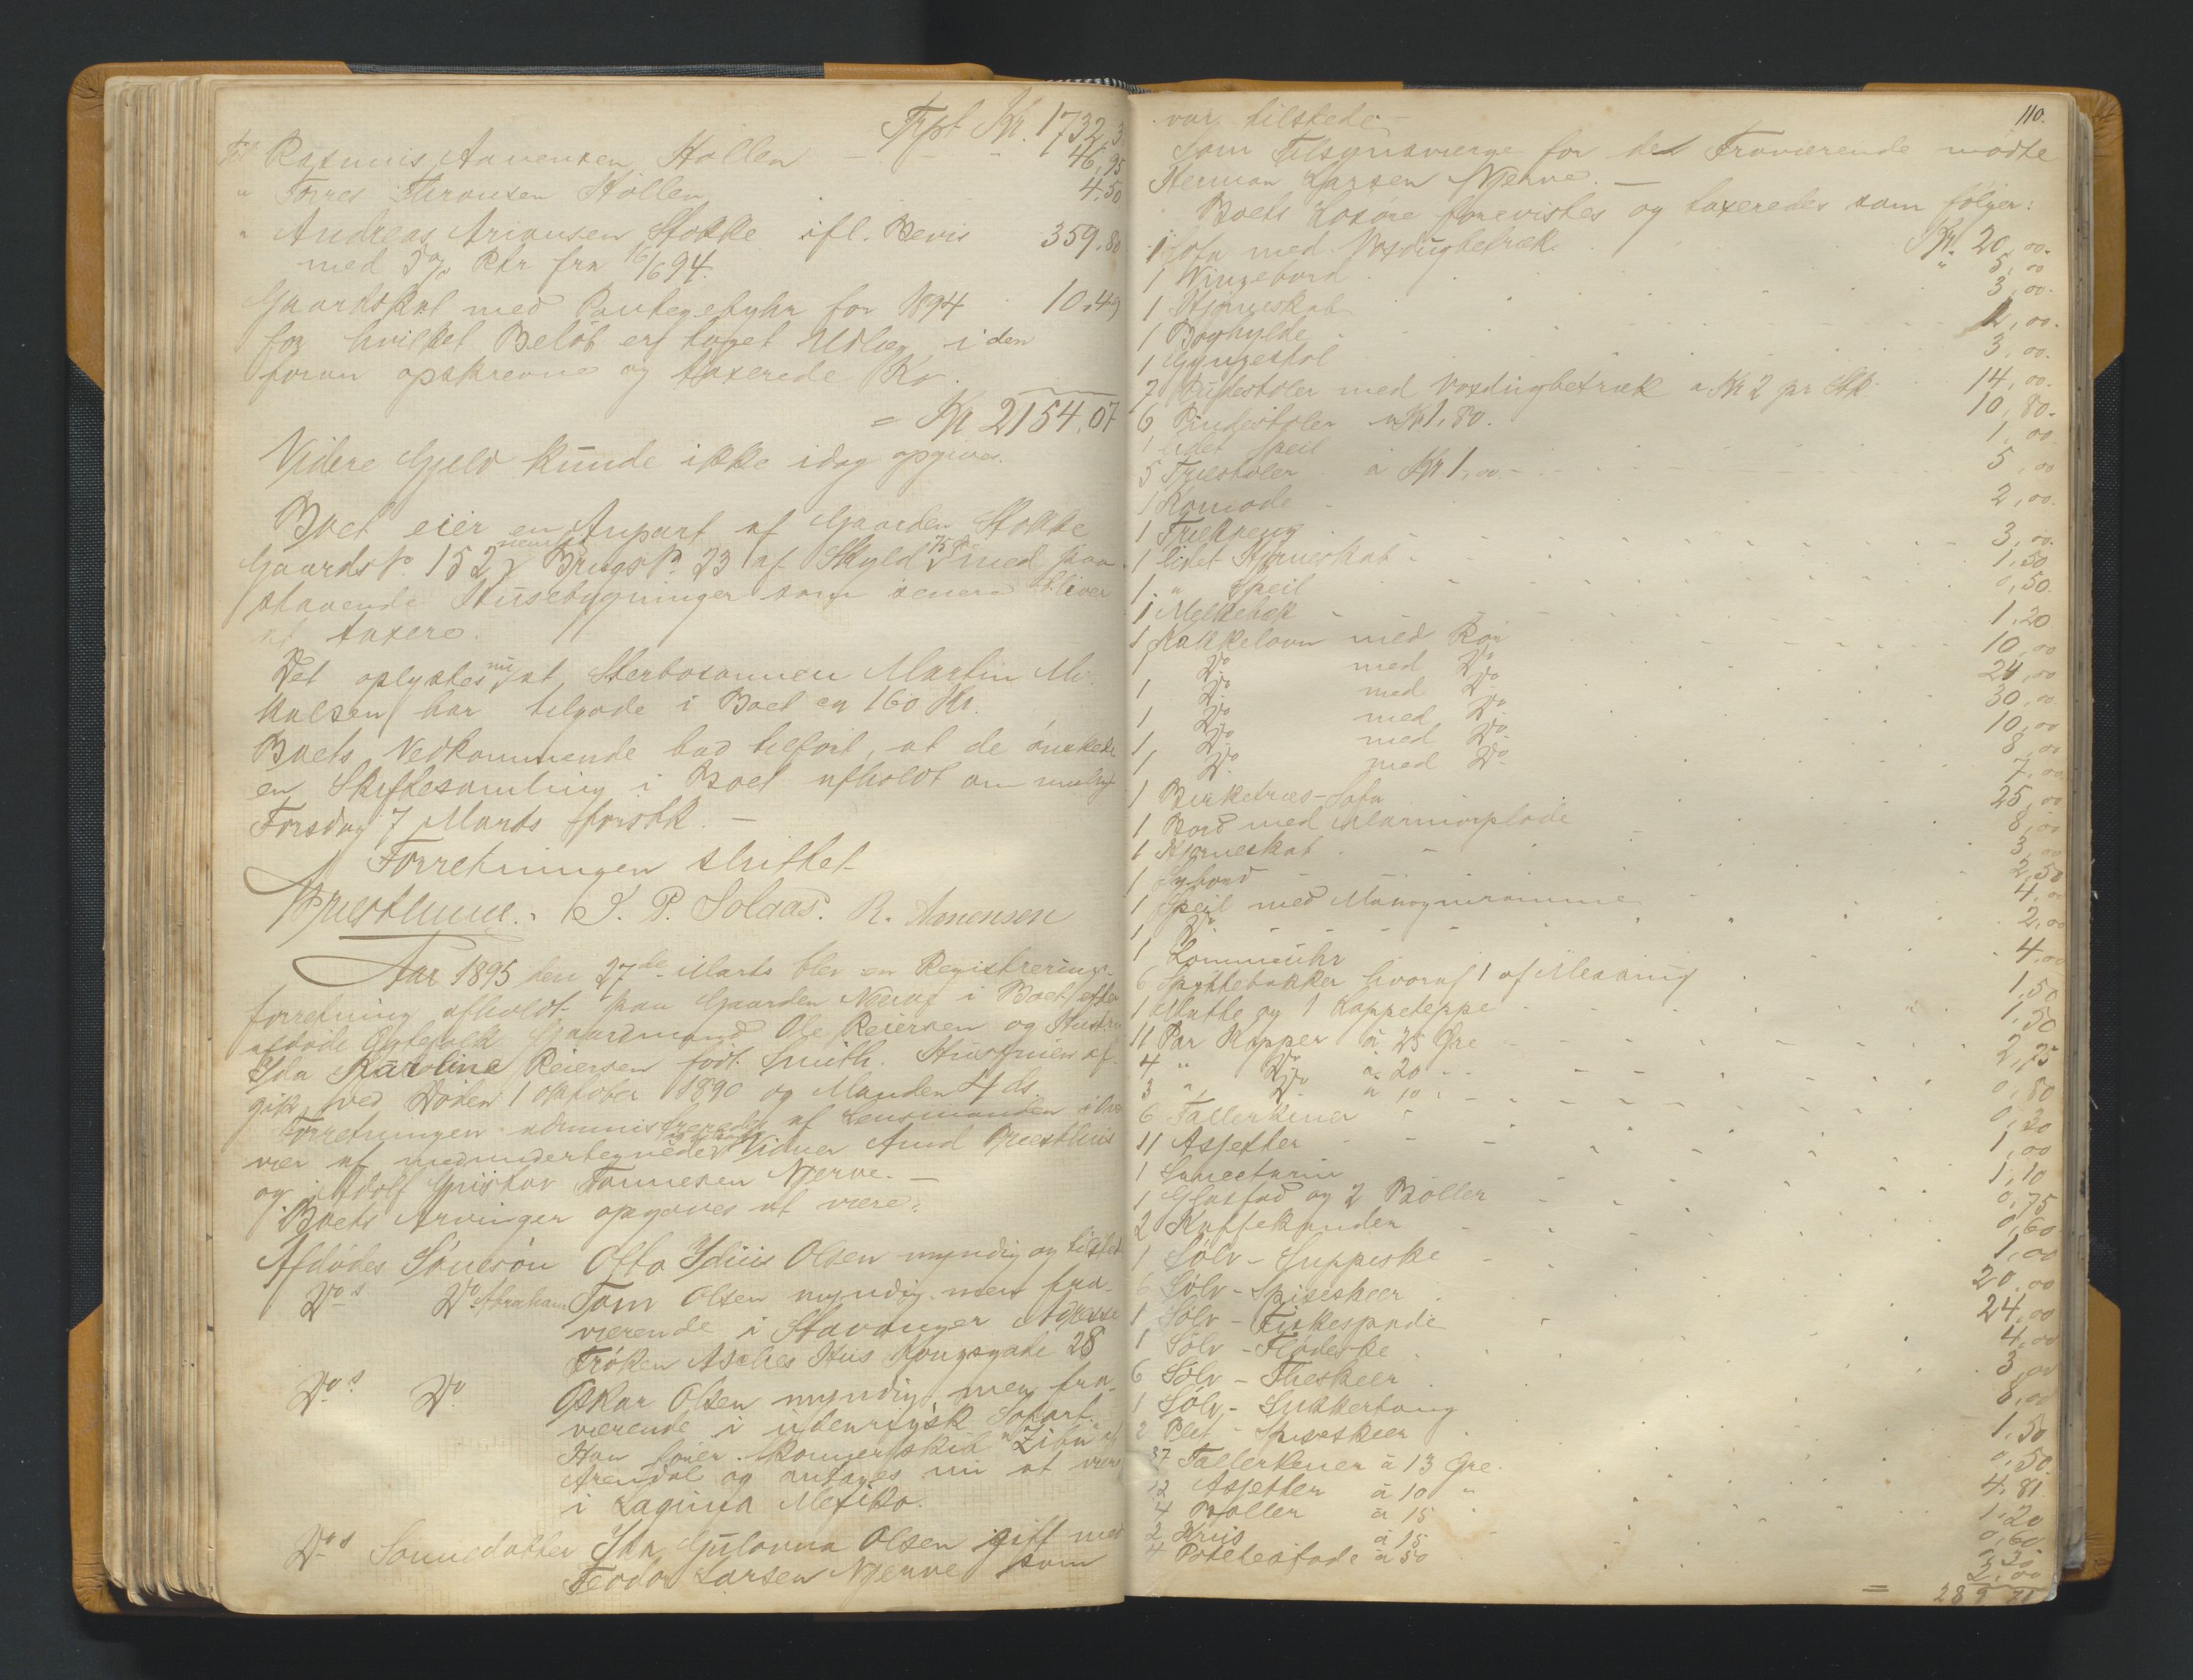 Trpt Kr. 1732,3
Til Rasmus Aanensen Hollen - - - 46,95
" Torres Aronsen Hollen 4,50
" Andreas Arionsen Stokke ifl. Bevis 359.80
med 5% Rtr fra 16/6 94.
Gaardskat med Pantegebyhr for 1894 10.49
for hvilket Beløb er taget Udlæg i den
foran opskrevne og taxerede Ko.
= Kr 2154.07
Videre Gjeld kunde ikke idag opgives.
Boet eier en Anpart af Gaarden Stokke
Gaards No. 152 Brugs No. 23 af Skyld med paa
staaende Husebygninger som senere bliver
at taxere.
Det oplystes nu at Sterbosønnen Martin Mi-
kalsen har tilgode i Boet en 160 Kr.
Boets Vedkommende bad tilført, at de ønskede
en Skiftesamling i Boet afholdt om muligt
Torsdag 7 Marts førstk. -
Forretningen sluttet
Bruestluue. S. P. Solaas. R. Aanensen
Aar 1895 den 27de Marts blev en Registrerings-
forretning afholdt paa Gaarden Njerve i Boet efter
afdøde Ægtefolk Gaardmand Ole Reiersen og Hustru
Ida Karoline Reiersen født Smith. Hustruen af-
gik ved Døden 1 Oktober 1890 og Manden 4 ds.
Forretningen administreredes af Lensmanden i Over
vær af medundertegnede Vidner Aud
og Adolf Gustav Tønnesen Njerve. -
Boets Arvinger opgaves at være:
Afdødes Sønnesøn Otto Idius Olsen myndig og tilsted
Dos Do Abraham Tom Olsen myndig men fra-
værende i Stavanger Adresse
Frøken Asches Hus Kongsgade 28
Dos. Do Oskar Olsen myndig, men fra-
værende i udenrigsk Søfart.
Han farer Skonnertskib "Ziba" af
Arendal og antages nu at være
i Laguna Mexiko.
Dos Sønnedatter Ida Gulovna Olsen gift med
Teodor Larsen Njerve som
110.
var tilstede -
Som Tilsynsværge for det Fraværende mødte
Herman Larsen Njerve. -
Boets Løsøre forevistes og taxeredes som følger:
1 Sofa med Voxdugbetræk Kr. 20,00.
1 Vingebord " 5,00
1 Hjørneskab 3,00.
1 Boghylde 1,00.
1 Gyngestol 3,00.
7 Pudestoler med Voxdugbetræk a Kr 2 pr Stk 14,00.
6 Pindestoler a Kr 1,80. 10,80.
1 lidet Speil 1,00
5 Træstoler á Kr 1,00 - 5,00
1 Komode 2,00.
1 Træseng 3,00.
1 lidet Hjørneskab 1,50
1 " Speil 0,50.
1 Melkebak 1,20
1 Kakkelovn med Rør 10,00
1 Do med Do 24,00
1 Do med Do 30,00
1 Do med Do 10,00
1 Do med Do 8,00
1 Do med Do 7,00
1 Birketræs-Sofa 25,00
1 Bord med Marmorplade 8,00
1 Hjørneskab 3,00
1 Sybord 2,50
1 Speil med Mahogniramme 4,00
1 Do 2,00
1 Lommeuhr 4,00
6 Spyttebakker hvoraf 1 af Messing 1,50
1 Matte og 1 Kappeteppe 1,50
11 Par Kopper á 25 Øre 2,75
4 " Do á 20 " 0,80
3 " Do á 10 " 0,30
6 Tallerkener 1,00
11 Asjetter 1,10
1 0,75
1 Glasfad og 2 Boller 0,60
2 Kaffekander 1,00
1 Sølv-Suppeske 20,00
6 Sølv-Spiseskeer 24,00
1 Sølv-Fiskespade 4,00
1 Sølv-Flødeske 3,00
6 Sølv-Theskeer 8,00
1 Sølv-Sukkertang 1,50
2 Plet-Spiseskeer 0,50
37 Tallerkener á 13 Øre. 4,81
12 Asjetter á 10 " 1,20
4 Boller á 15 " 0,60
2 Krus á 15 0,30
4 Potetesfade á 50 2,00
= 289 71